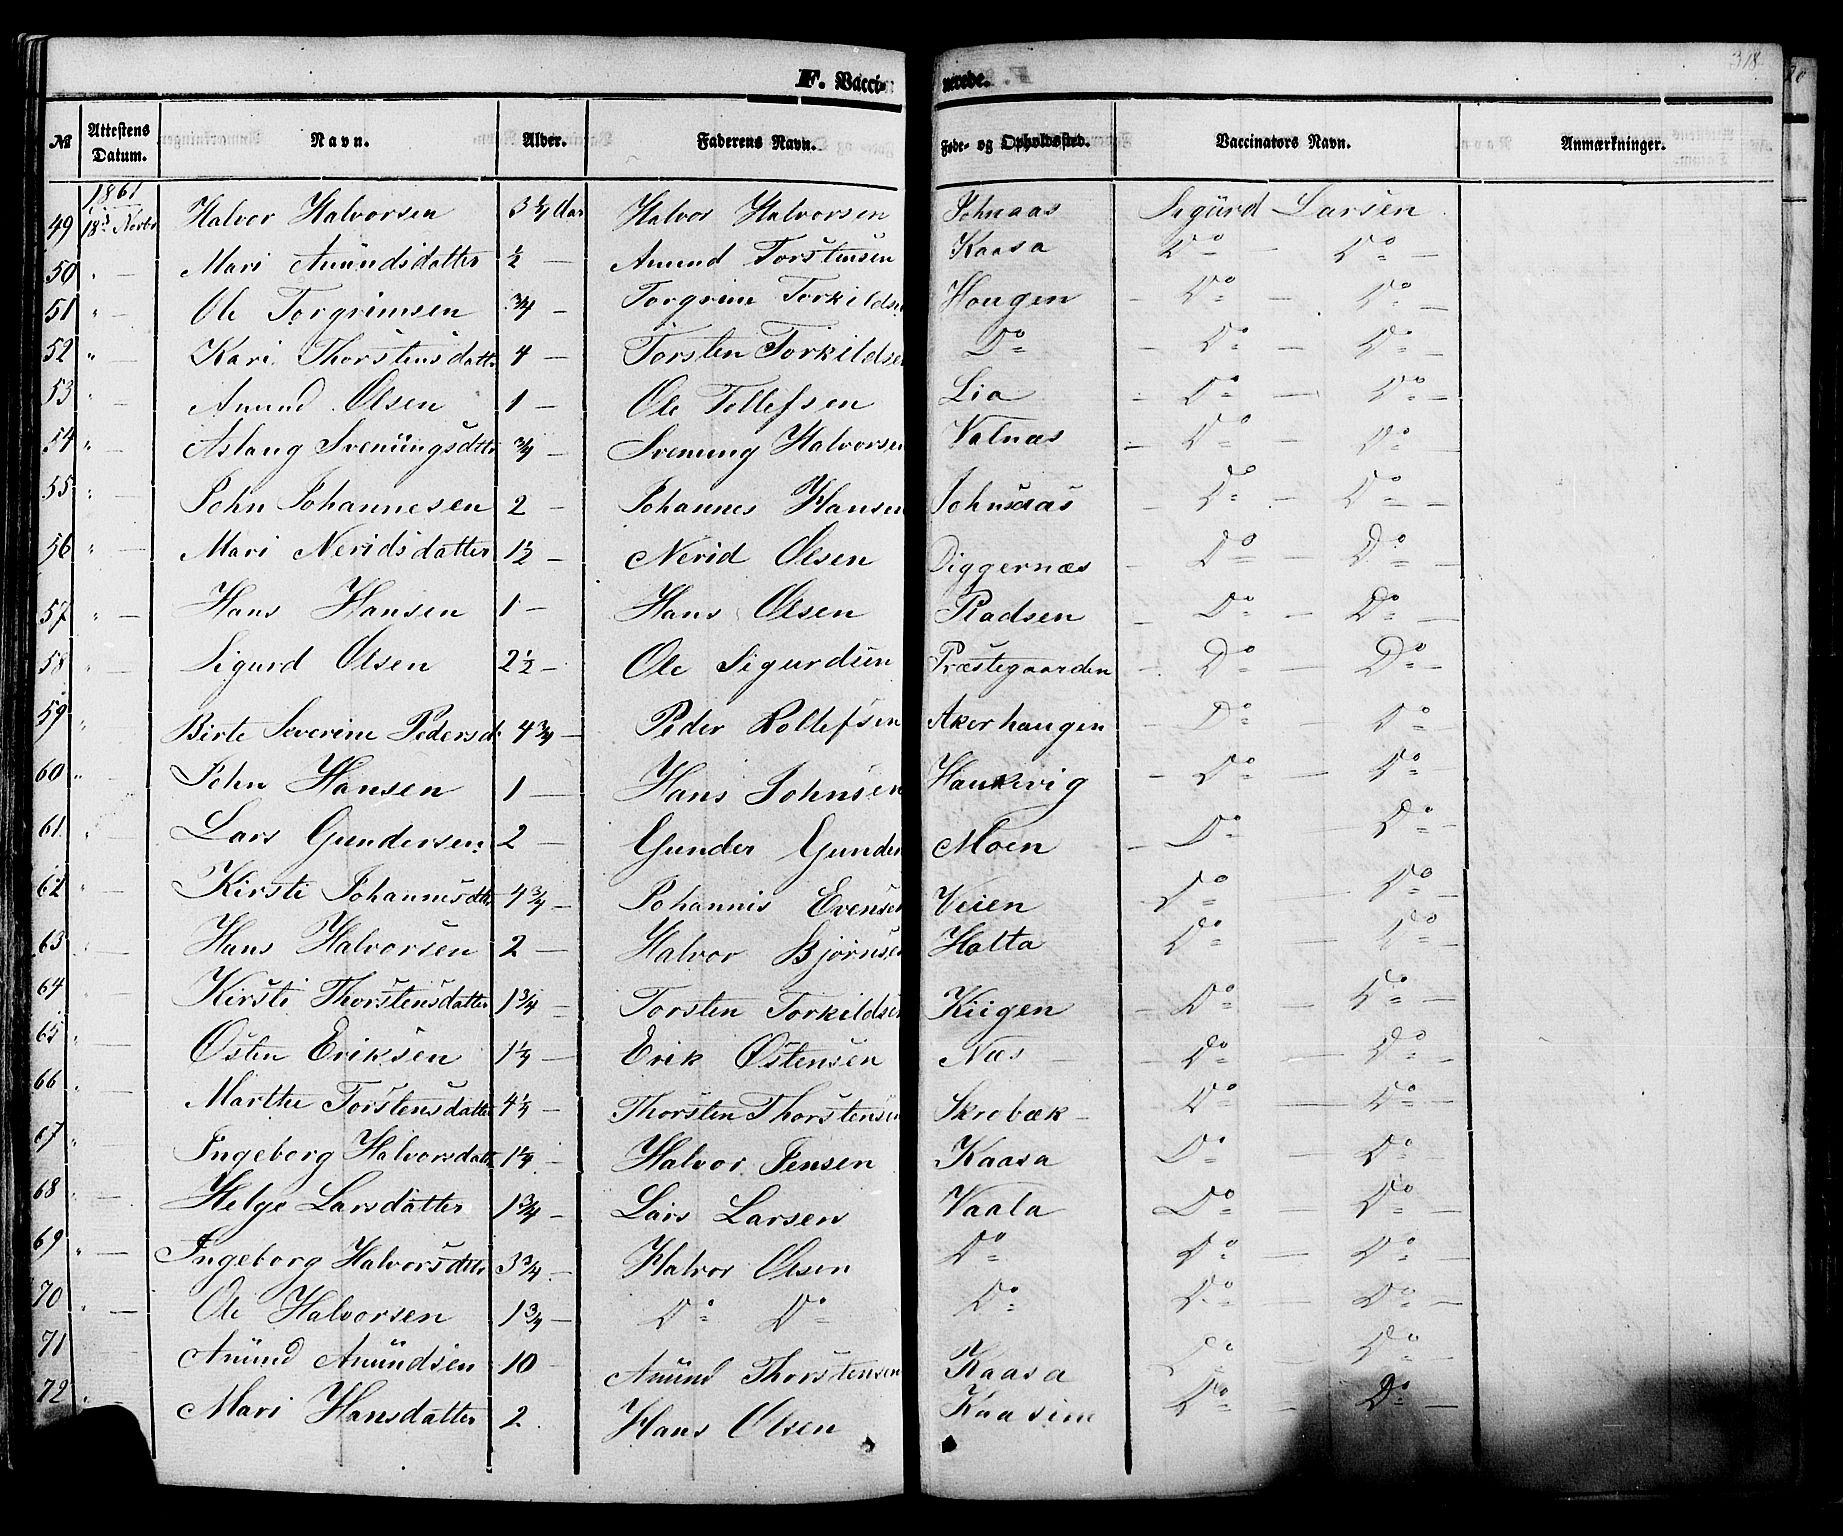 318
F. Vacci- nerede.
№ Attestens Datum. Navn. Alder. Faderens Navn. Føde- og Opholdssted. Vaccinators Navn. Anmærkninger.
1861
49 18d Novbr Halvor Halvorsen 3 1/4 Aar Halvor Halvorsen Johnaas Sigurd Larsen
50 " — Mari Amundsdatter 1/2 — Amund Torstensen Kaasa Do — Do —
51 " — Ole Torgrimsen 3/4 — Torgrim Torkildsen Hougen — Do — Do —
52 " — Kari Thorstensdatter 4 — Torsten Torkildsen Do — Do — Do —
53 " — Amund Olsen 1 — Ole Tollefsen Lia — Do — Do —
54 " — Aslaug Svenungsdtter 3/4 — Svenung Halvorsen Valnæs — Do — Do —
55 " — John Johannesen 2 — Johannes Hansen Johnsaas — Do — Do —
56 " — Mari Neridsdatter 1 1/2 — Nerid Olsen Diggernæs — Do — Do —
57 " — Hans Hansen 1 — Hans Olsen — Do — Do —
58 " — Sigurd Olsen 2 1/2 — Ole Sigurdsen Præstegaarden — Do — Do —
59 " Birte Severine Pedersd. 4 3/4 — Peder Rollefsen Akerhaugen — Do — Do —
60 " John Hansen 1 — Hans Johnsen Haukvig — Do — Do —
61 " Lars Gundersen 2 — Gunder Gunder Moen — Do — Do —
62 " — Kirsti Johannesdtter 4 3/4 — Johannis Evensen Veien Do — Do —
63 " — Hans Halvorsen 2 — Halvor Bjørnsen Holta Do — Do —
64 " — Kirsti Thorstensdatter 1 3/4 — Torsten Torkildsen — Do — Do —
65 " — Østen Eriksen 1 1/4 — Erik Østensen Næs — — Do — Do —
66 " — Marthe Torstensdatter — Thorsten Thorstensen Skrebæk — Do — Do —
67 " Ingeborg Halvorsdatt 1 1/4 — Halvor Jensen Kaasa Do — Do —
68 " — Helge Larsdatter 1 3/4 — Lars Larsen Vaala Do — Do —
69 " — Ingeborg Halvorsdtter 3 3/4 — Halvor Olsen Do Do — Do —
70 " — Ole Halvorsen 1 3/4 — Do Do Do Do — Do —
71 Amund Amundsen 10 — Amund Thorstensen Kaasa Do — Do —
72 " Mari Hansdatter 2 Hans Olsen Do — Do —